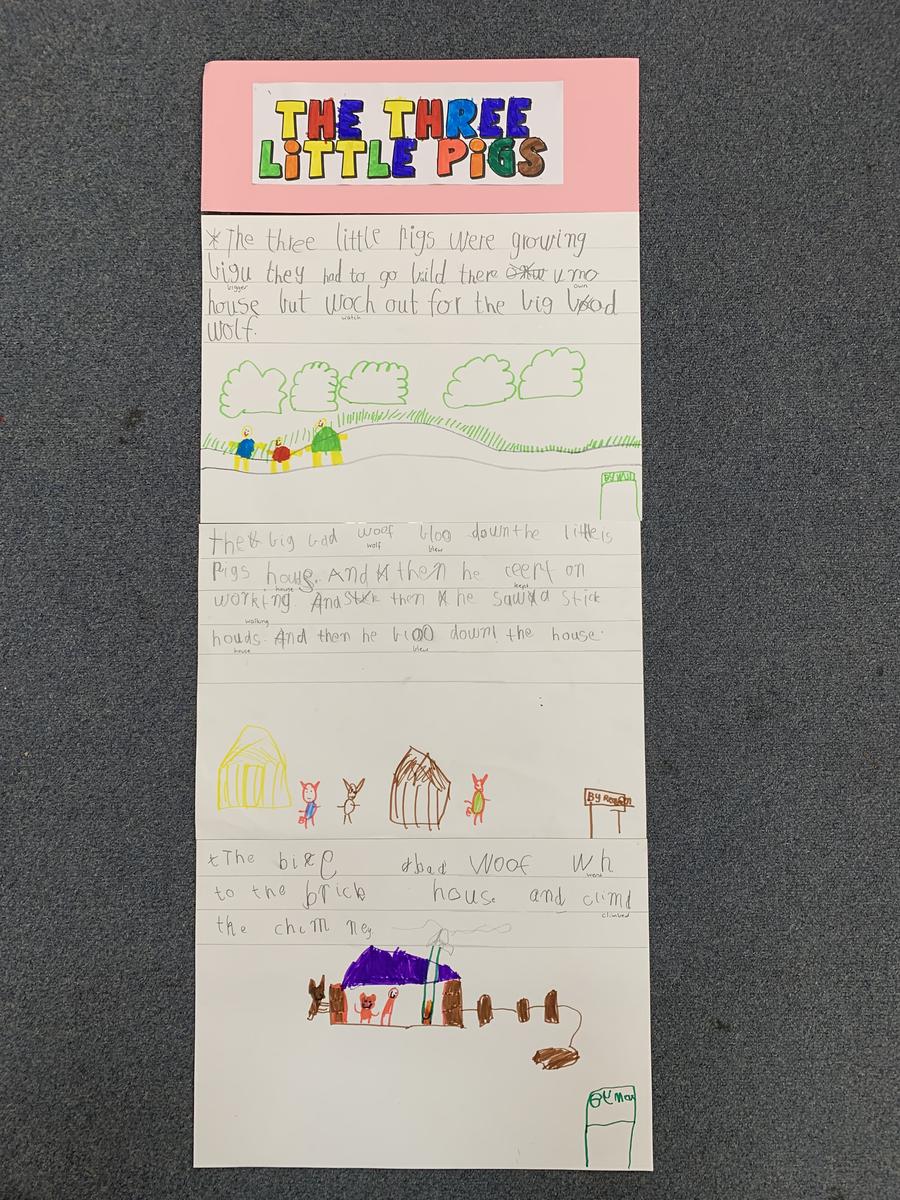 THE THREE
LiTTLE PiGS
The three little pigs were growing
bigu they had to go bild there
bigger
own
house but woch out for the big bad
watch
wolf.
the big bad woof bloo down the
wolf
blew
pigs And then he ceept on
house
kept
working. And then he saw a stick
walking
houds. And then he bloo down! the house.
house
blew
The bad woof wh
went
to the brick house and climd
climbed
the chim ney.